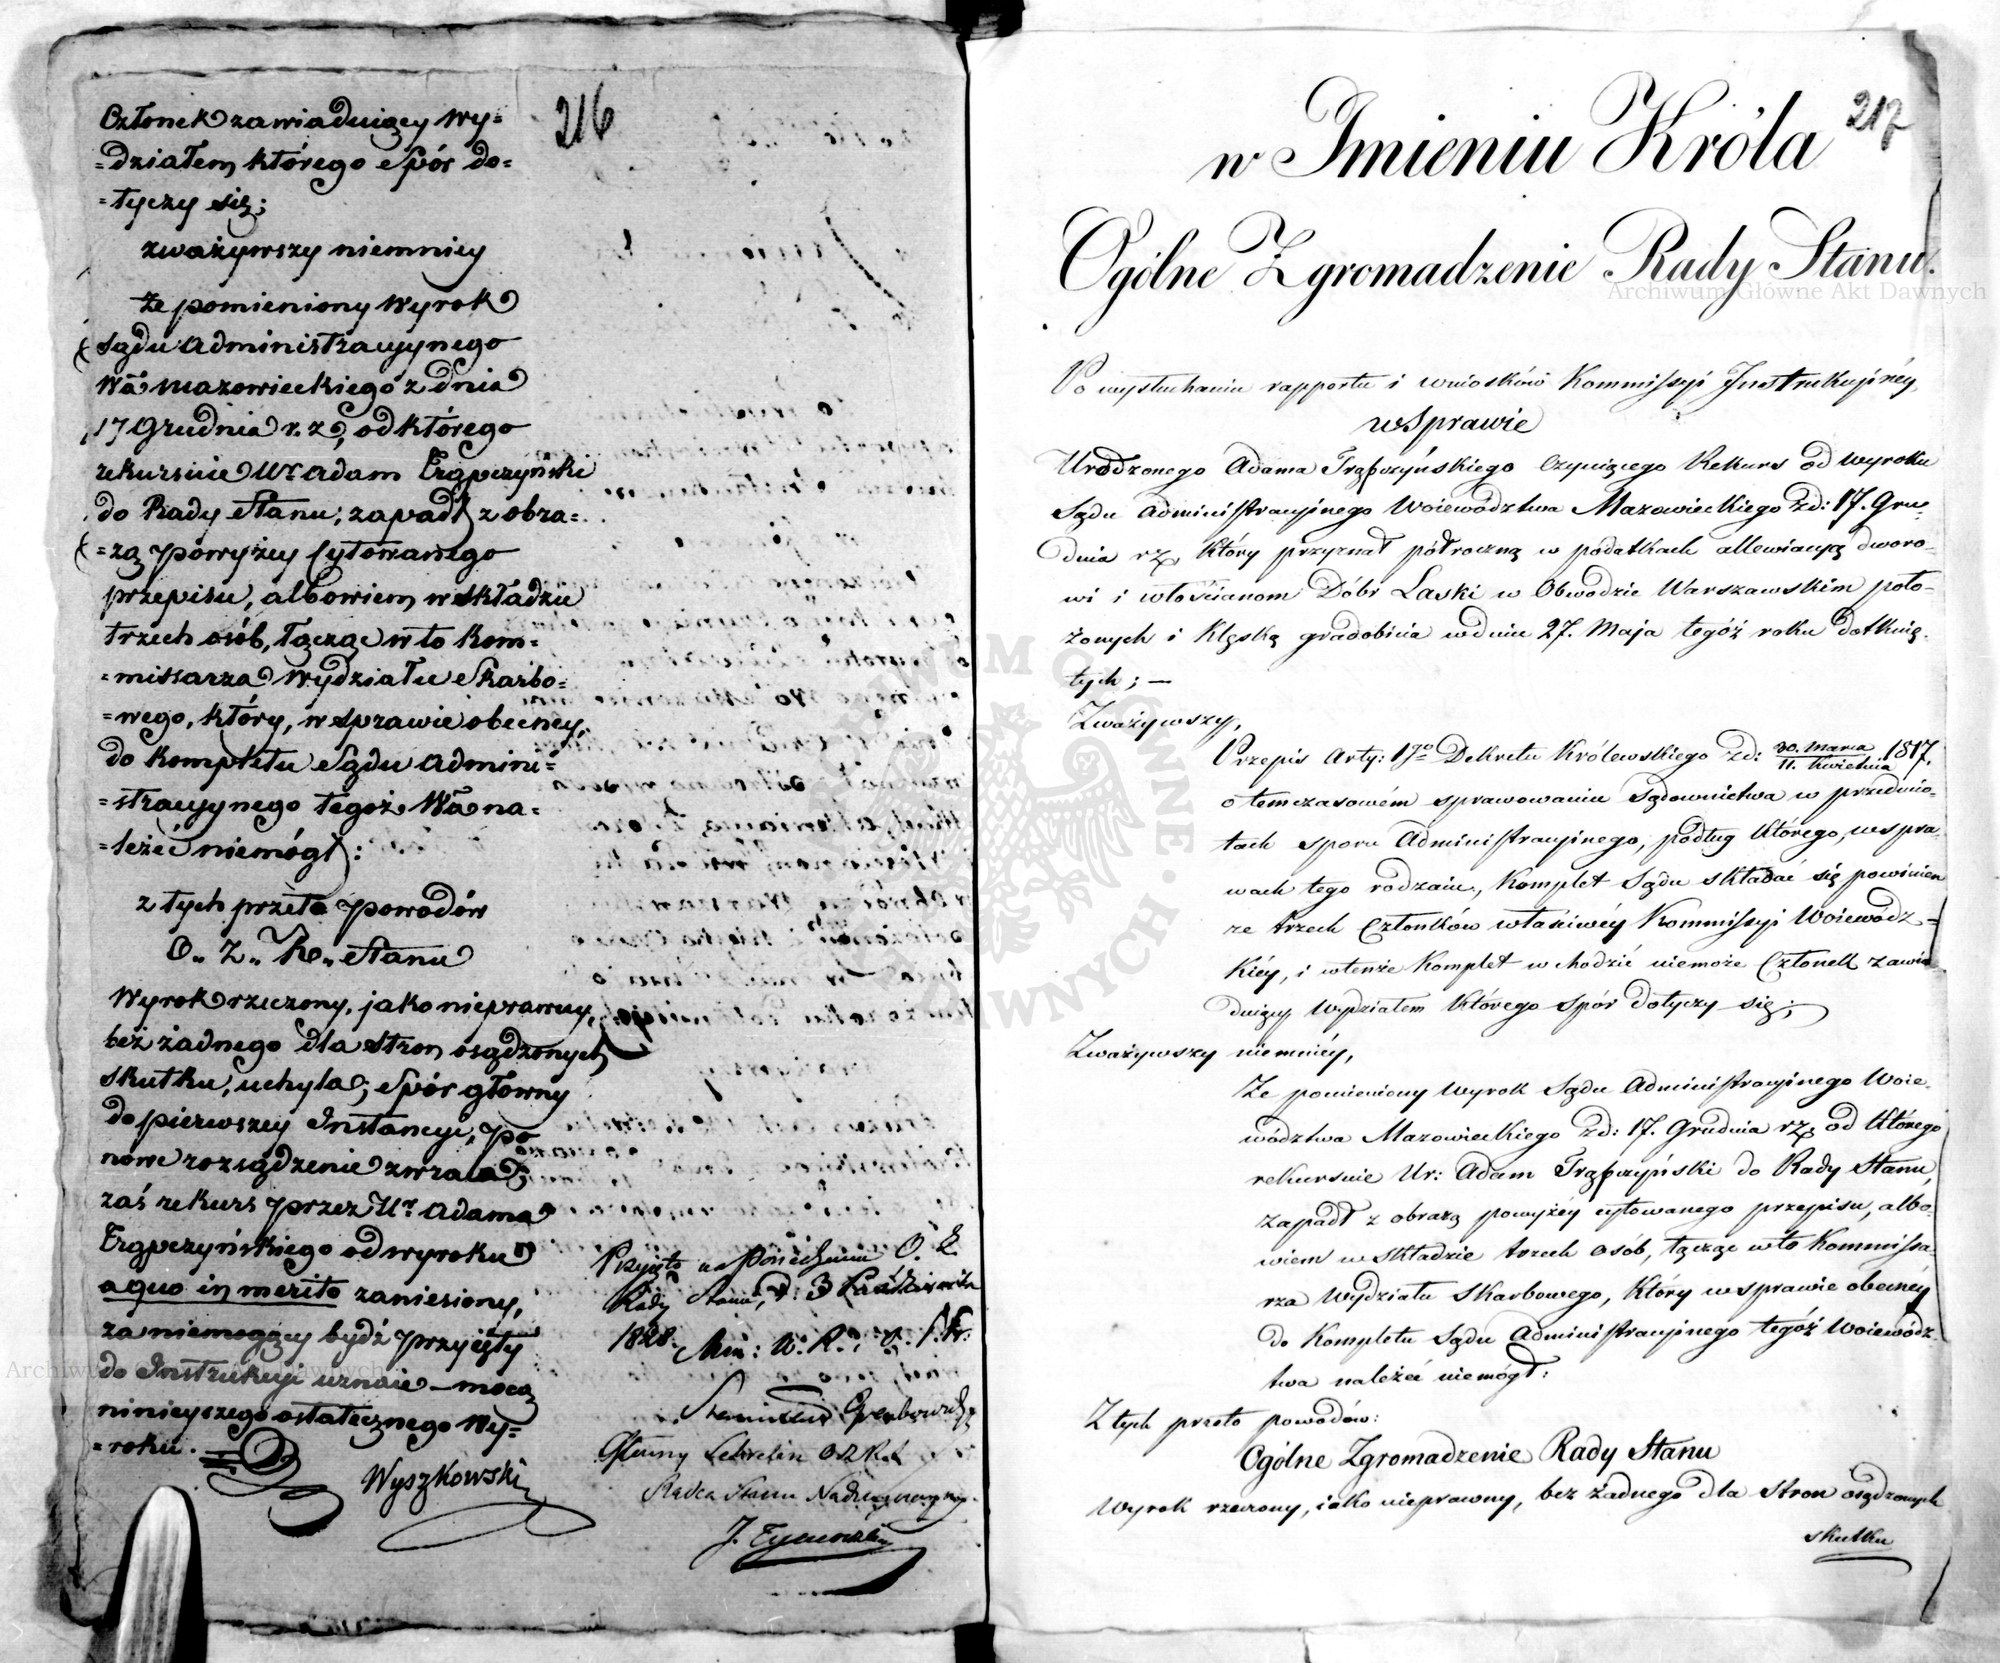 216
Członek zawiaduiący Wy=
=działem którego Spór do=
=tyczy się;
zważywszy niemniey
że pomieniony Wyrok
Sądu Administracyynego
Wā Mazowieckiego z dnia
17 Grudnia r. z., od którego
rekursuie Ur Adam Trąpczyński
do Rady Stanu; zapadł z obra=
=zą powyżey Cytowanego
przepisu, albowiem w Składzie
trzech osób, łącząc w to Kom=
=missarza Wydziału Skarbo=
=wego, który, w sprawie obecney,
do Kompletu Sądu Admini=
=stracyynego tegoż Wā na=
=leżeć niemógł:
z tych przeto powodów
O. Z. R. Stanu
Wyrok rzeczony, jako nieprawny,
bez żadnego dla Stron osądzonych
skutku, uchyla; Spór główny
do pierwszey Instancyi, po
nowe rozsądzenie zwraca;
zaś rekurs przez Ur Adama
Trąpczyńskiego od wyroku
a quo in merito zaniesiony,
za niemogący bydź przyięty
do Instrukcyi uznaie – mocą
ninieyszego ostatecznego Wy=
=roku.
Wyszkowski
Przyięto na Posiedzeniu O. Z.
Rady Stanu, d. 3 Października
1828.
Główny Sekretarz
Radca Stanu Nadzwyczayny
J. Tymowski
217
w Imieniu Króla
Ogólne Zgromadzenie Rady Stanu.
Po wysłuchaniu rapportu i wniosków Kommissyi Instrukcyiney,
w Sprawie
Urodzonego Adama Trąpczyńskiego Czyniącego Rekurs od Wyroku
Sądu Administracyinego Województwa Mazowieckiego zd: 17. Gru-
dnia rz. który przyznał półroczną w podatkach allewiacyą dworo-
wi i włościanom Dóbr Laski w Obwodzie Warszawskim poło-
żonych i klęską gradobicia w dniu 27. Maja tegóż roku dotknię-
tych; —
Zważywszy,
Przepis Arty: 1go Dekretu Królewskiego zd: 30. Marca / 11. Kwietnia 1817,
o temczasowém sprawowaniu Sądownictwa w przedmio-
tach sporu Administracyinego, podług którego, w spra-
wach tego rodzaiu, Komplet Sądu składać się powinien
ze trzech Członków właściwéy Kommissyi Woiewódz=
kiéy, i w tenże Komplet wchodzić niemoże Członek zawia
duiący Wydziałem którego Spór dotyczy się;
Zważywszy niemniéy,
Że pomieniony Wyrok Sądu Administracyinego Woie-
wództwa Mazowieckiego zd: 17. Grudnia rz. od którego
rekursuie Ur: Adam Trąpczyński do Rady Stanu,
zapadł z obrazą powyżéy cytowanego przepisu, albo-
wiem w składzie trzech osób, łącząc w to Kommissa-
rza Wydziału Skarbowego, który w sprawie obecnéy
do Kompletu Sądu Administracyinego tegóż Woiewódz-
twa należeć niemógł:
Z tych przeto powodów:
Ogólne Zgromadzenie Rady Stanu
Wyrok rzeczony, iako nieprawny, bez żadnego dla Stron osądzonych
skutku
Archiwum Główne Akt Dawnych
Archiwum Główne Akt Dawnych
ARCHIWUM GŁÓWNE AKT DAWNYCH